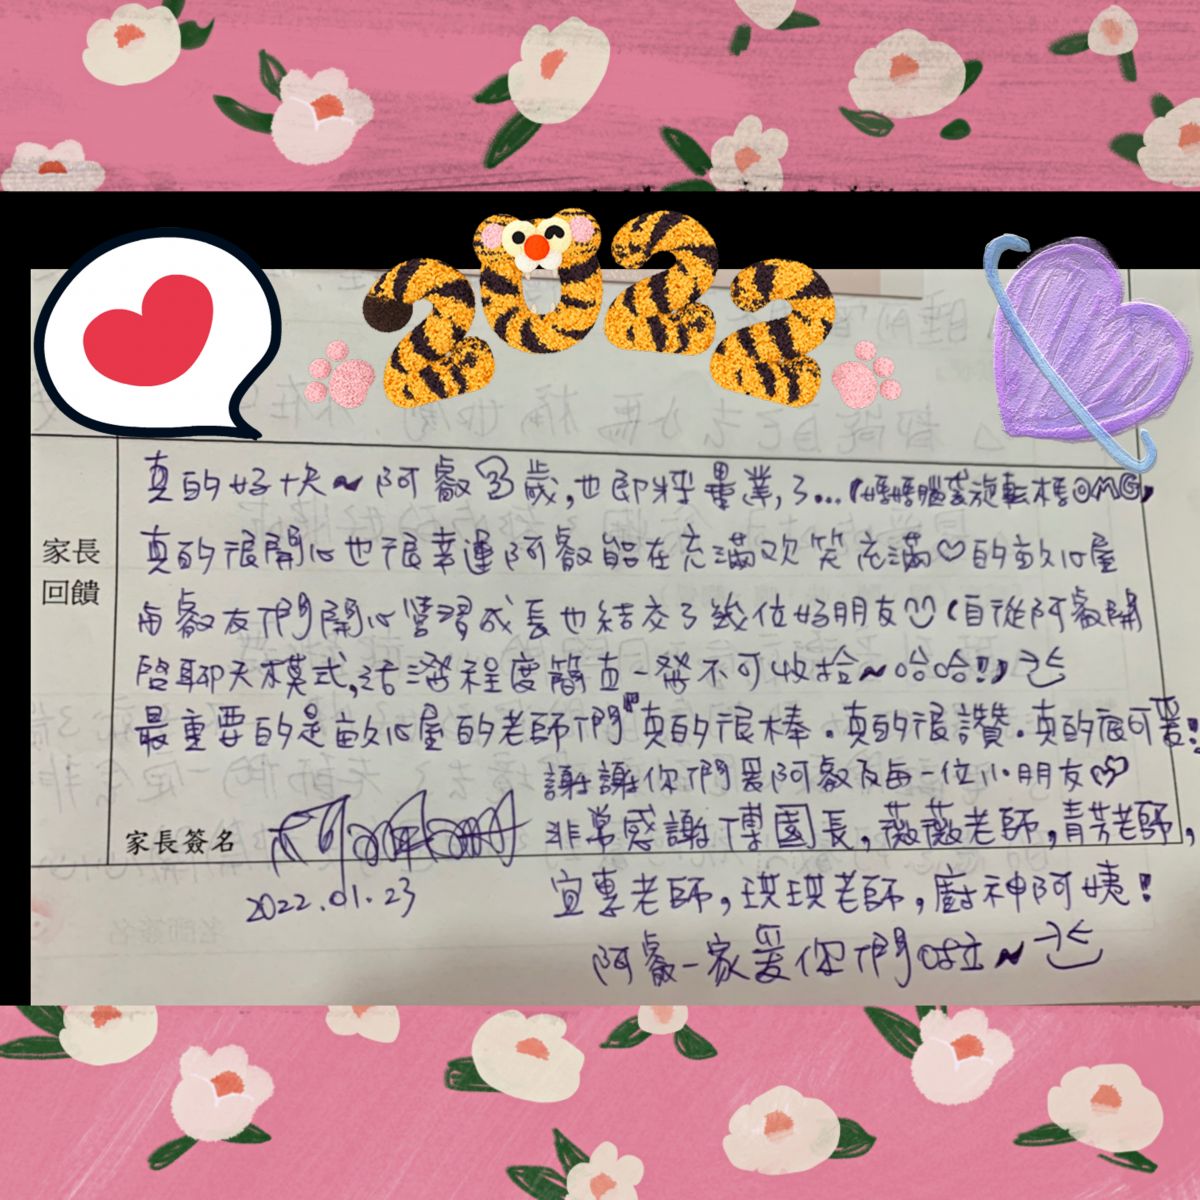 2022
真的好快~阿叡3歲,也即將畢業,了...(媽媽腦袋旋轉標OMG)
家長
回饋
真的很開心也很幸運阿叡能在充滿歡笑充滿♡的啟心屋
與叡友們開心學習成長也結交了幾位好朋友(自從阿叡開
啓聊天模式,活潑程度簡直一發不可收拾~哈哈!!)
最重要的是啟心屋的老師們"真的很棒.真的很讚.真的很可愛!
謝謝你們愛阿叡及每一位小朋友
家長簽名
非常感謝傅園長,薇薇老師,青芳老師,
2022.01.23
宜專老師,琪琪老師,廚神阿姨!
阿叡一家愛你們啦~